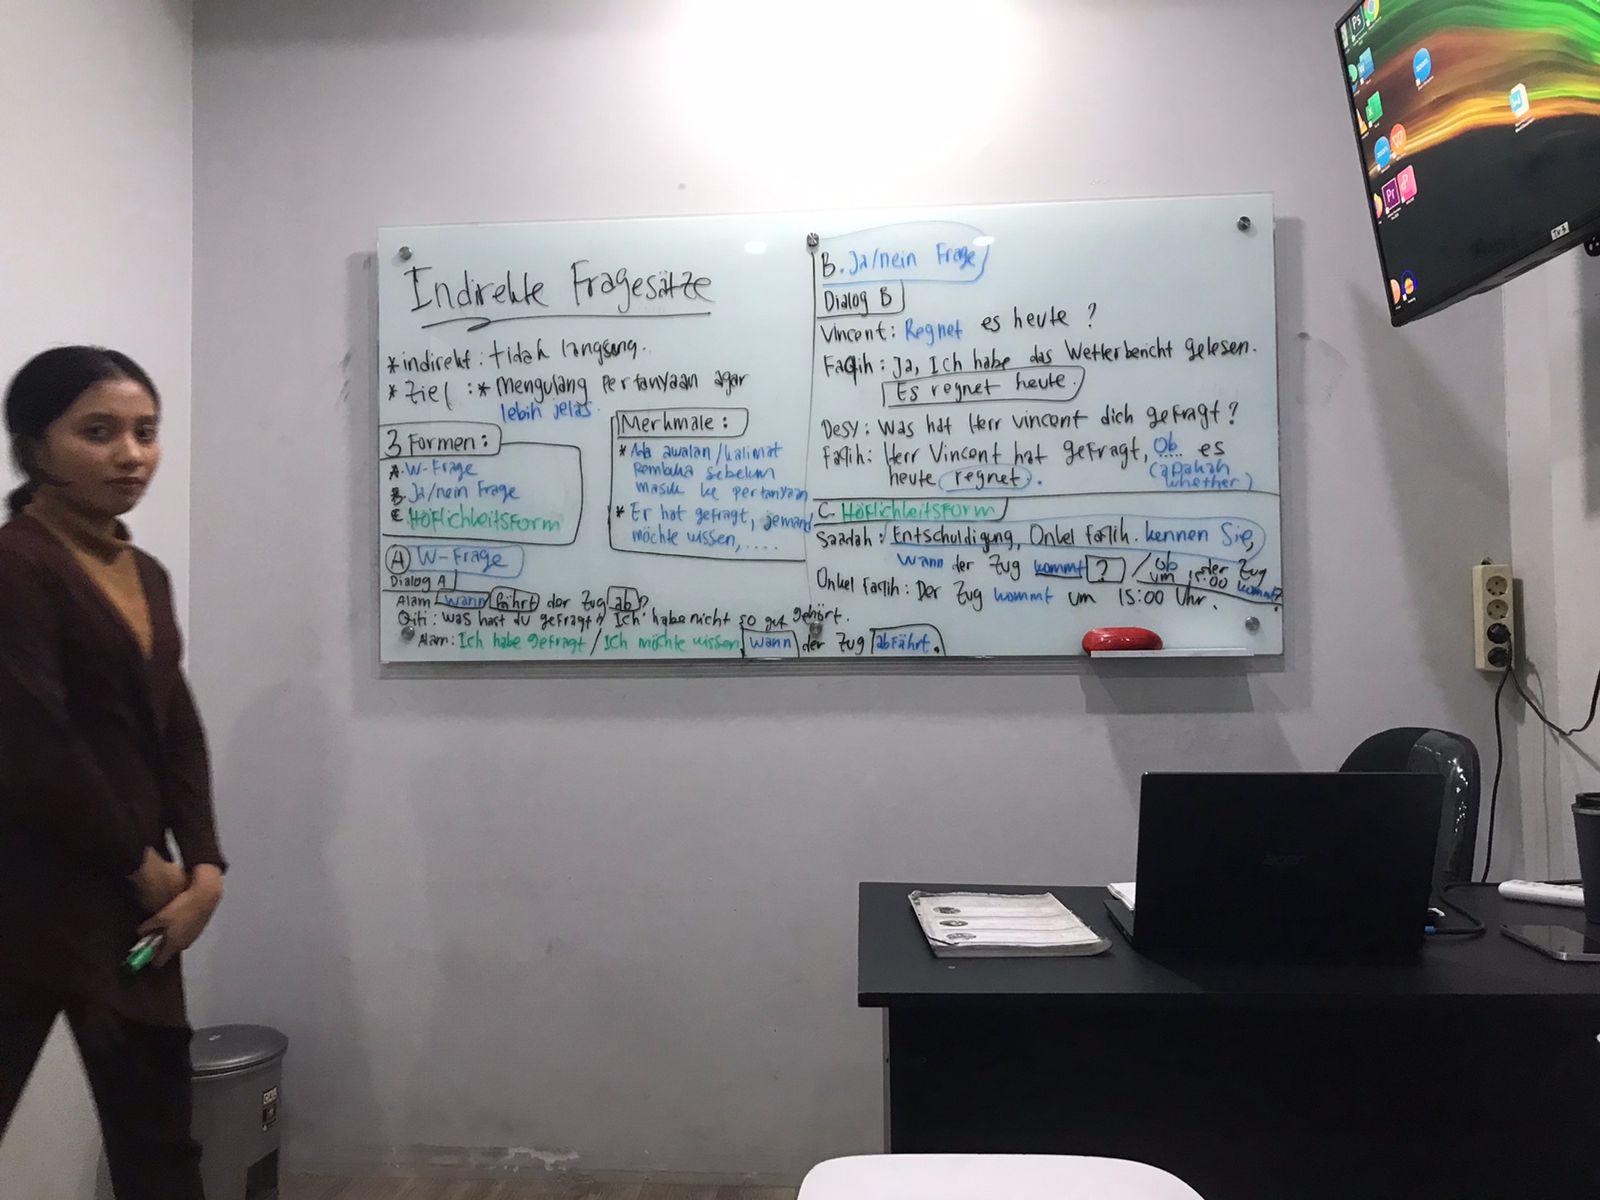 Indirekte Fragesätze
* indirekt : tidak langsung.
* Ziel : * Mengulang pertanyaan agar
lebih jelas.
3 Formen :
A. W-Frage
B. Ja/nein Frage
C. Höflichkeitsform
Merkmale :
* Ada awalan/kalimat
Pembuka sebelum
masuk ke pertanyaan
* Er hat gefragt, jemand
möchte wissen, ....
A W-Frage
Dialog A
Alam : Wann fährt der Zug ab?
Qiti : Was hast du gefragt? Ich habe nicht so gut gehört.
Alam : Ich habe gefragt / Ich möchte wissen wann der Zug abfährt.
B. Ja/nein Frage
Dialog B
Vincent : Regnet es heute ?
Faqih : Ja, Ich habe das Wetterbericht gelesen.
Es regnet heute.
Desy : Was hat Herr Vincent dich gefragt ?
Faqih : Herr Vincent hat gefragt, Ob es
(apakah
heute regnet.
whether)
C. Höflichkeitsform
Saadah : Entschuldigung, Onkel Faqih. kennen Sie,
wann der Zug kommt ? / Ob der Zug
um 15:00 kommt?
Onkel Faqih : Der Zug kommt um 15:00 Uhr.
Ps
W
X
zoom
W
zoom
Pr
TV 3
acer